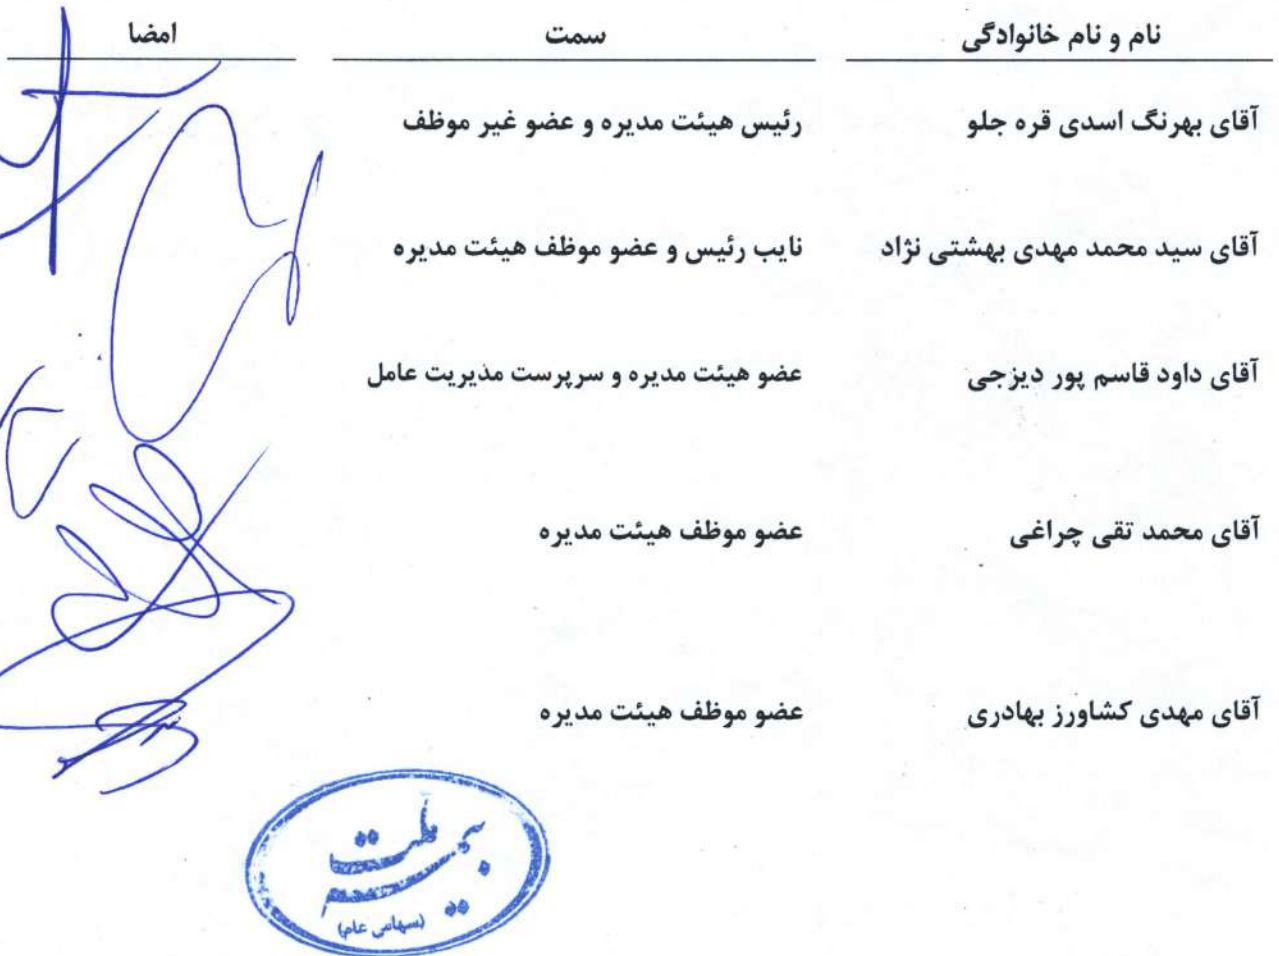 نام و نام خانوادگی سمت امضا
آقای بهرنگ اسدی قره جلو رئیس هیئت مدیره و عضو غیر موظف
آقای سید محمد مهدی بهشتی نژاد نایب رئیس و عضو موظف هیئت مدیره
آقای داود قاسم پور دیزجی عضو هیئت مدیره و سرپرست مدیریت عامل
آقای محمد تقی چراغی عضو موظف هیئت مدیره
آقای مهدی کشاورز بهادری عضو موظف هیئت مدیره
بیمه ملت
(سهامی عام)